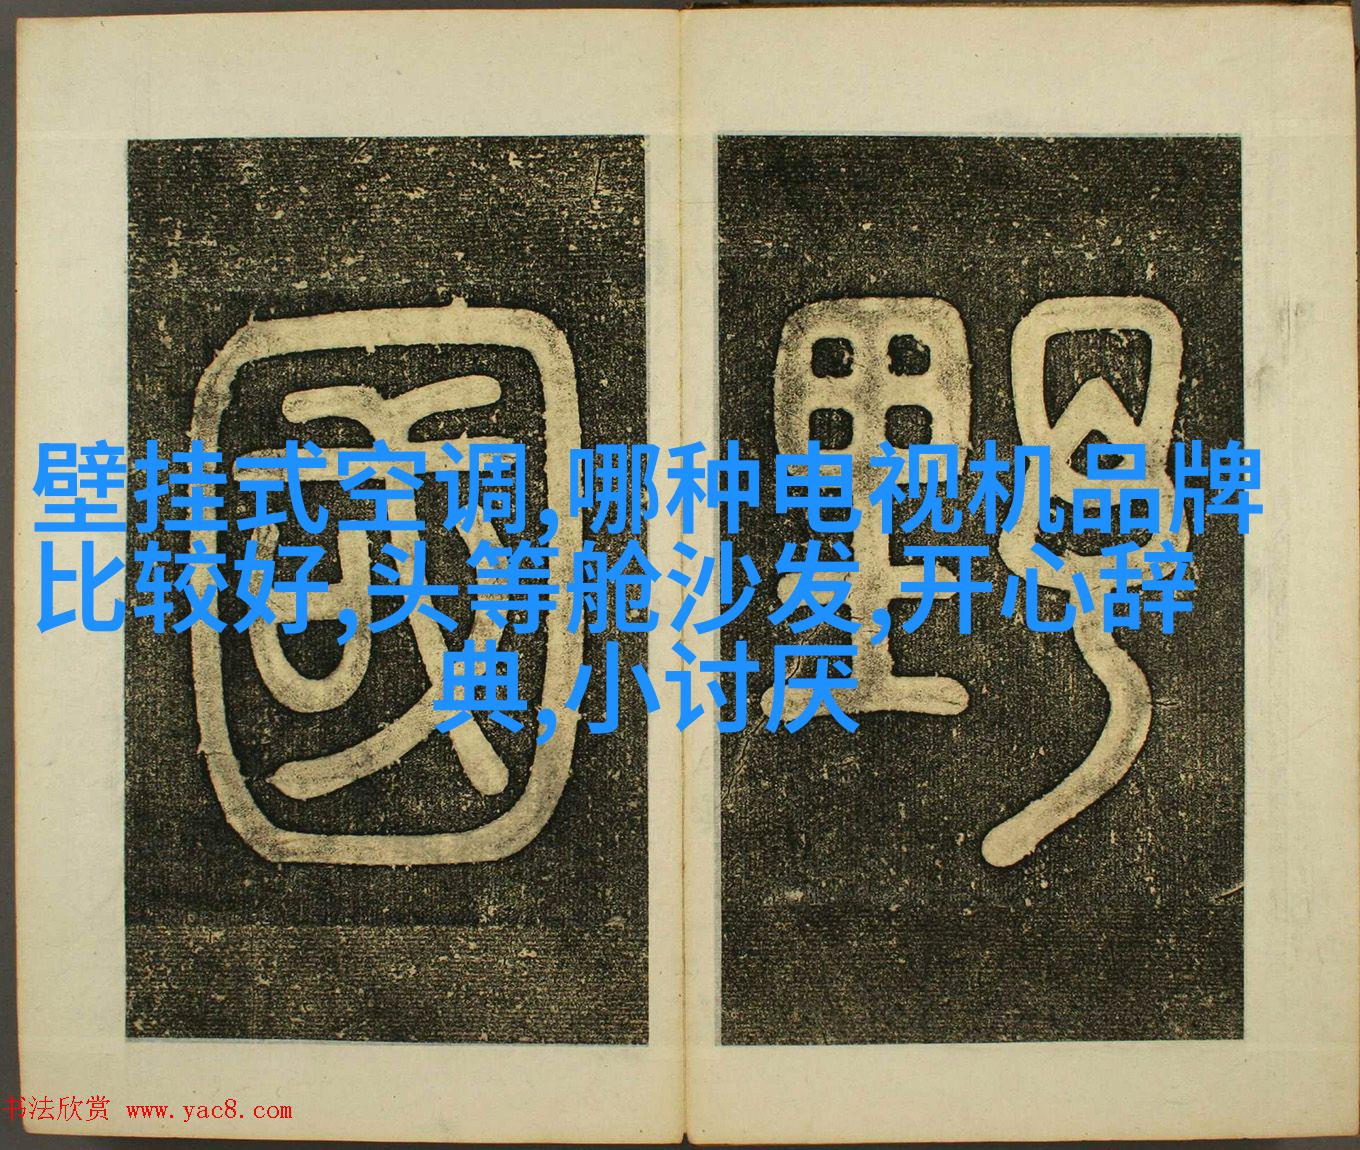 壁挂式空调,哪种电视机品牌
比较好,头等舱沙发,开心辞
典,小讨厌
野
國
书法欣赏 www.yac8.com